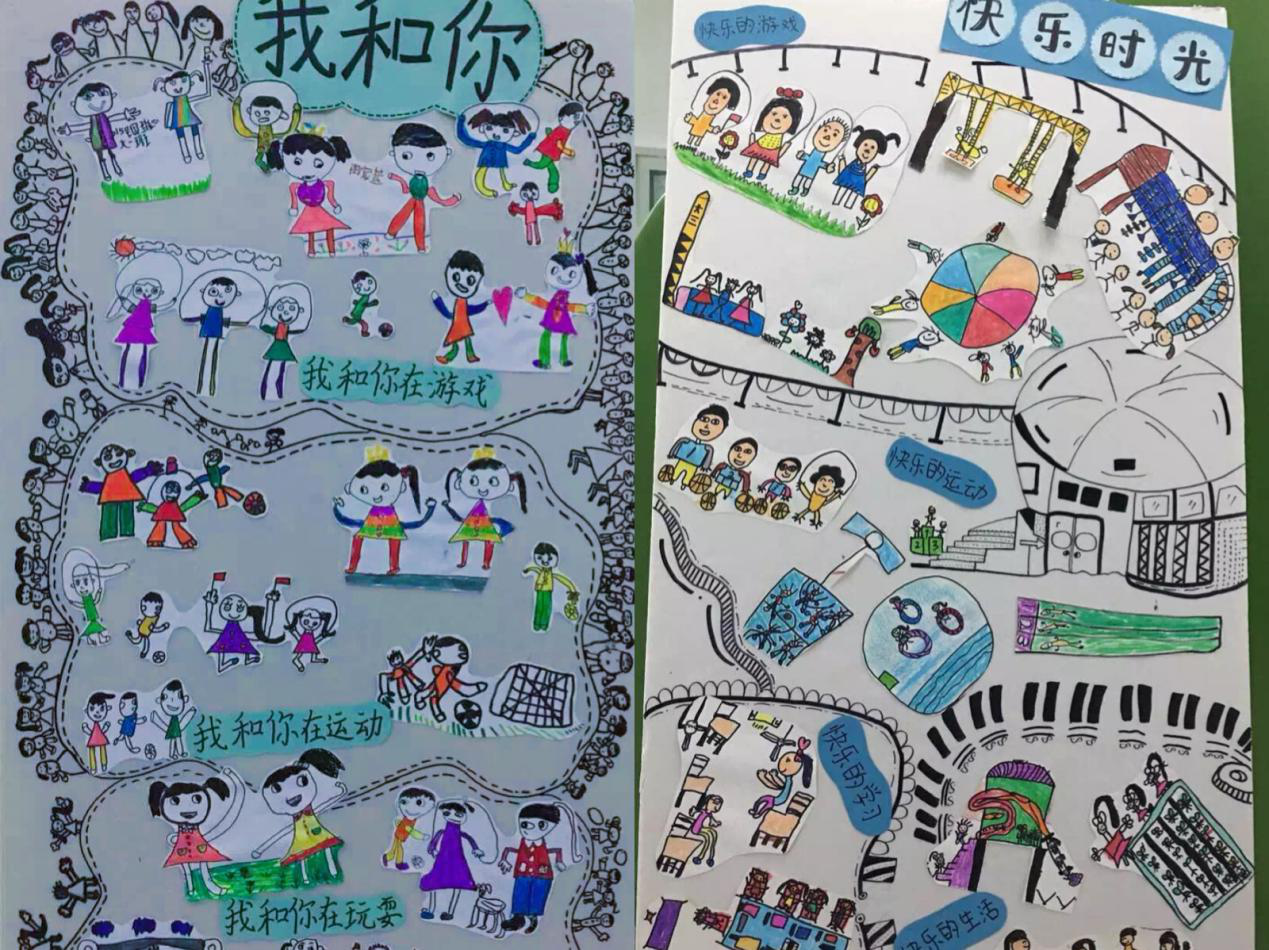 我和你
我和你在游戏
我和你在运动
我和你在玩耍
快乐时光
快乐的游戏
快乐的运动
2 1 3
快乐的学习
快乐的生活